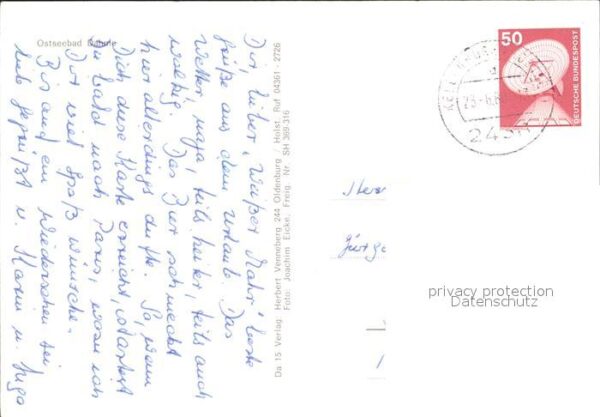 Ostseebad Dahme
Dir, lieber "weißer Mohr" beste
Grüße aus dem Urlaub. Das
Wetter, naja, teils heiter, teils auch
wolkig. Das Bier schmeckt
hier allerdings dufte. So, wenn
Dich diese Karte erreicht, startest
Du bald nach Paris, wozu ich
Dir viel Spaß wünsche.
Bis auf ein Wiedersehen sei
lieb gegrüßt v. Karin u. Ingo
Da 15 Verlag: Herbert Venneberg 244 Oldenburg / Holst. Ruf 04361 - 2726
Foto: Joachim Eicke, Freig. Nr. SH 369-316
50
DEUTSCHE BUNDESPOST
Herr
Jürge
privacy protection
Datenschutz